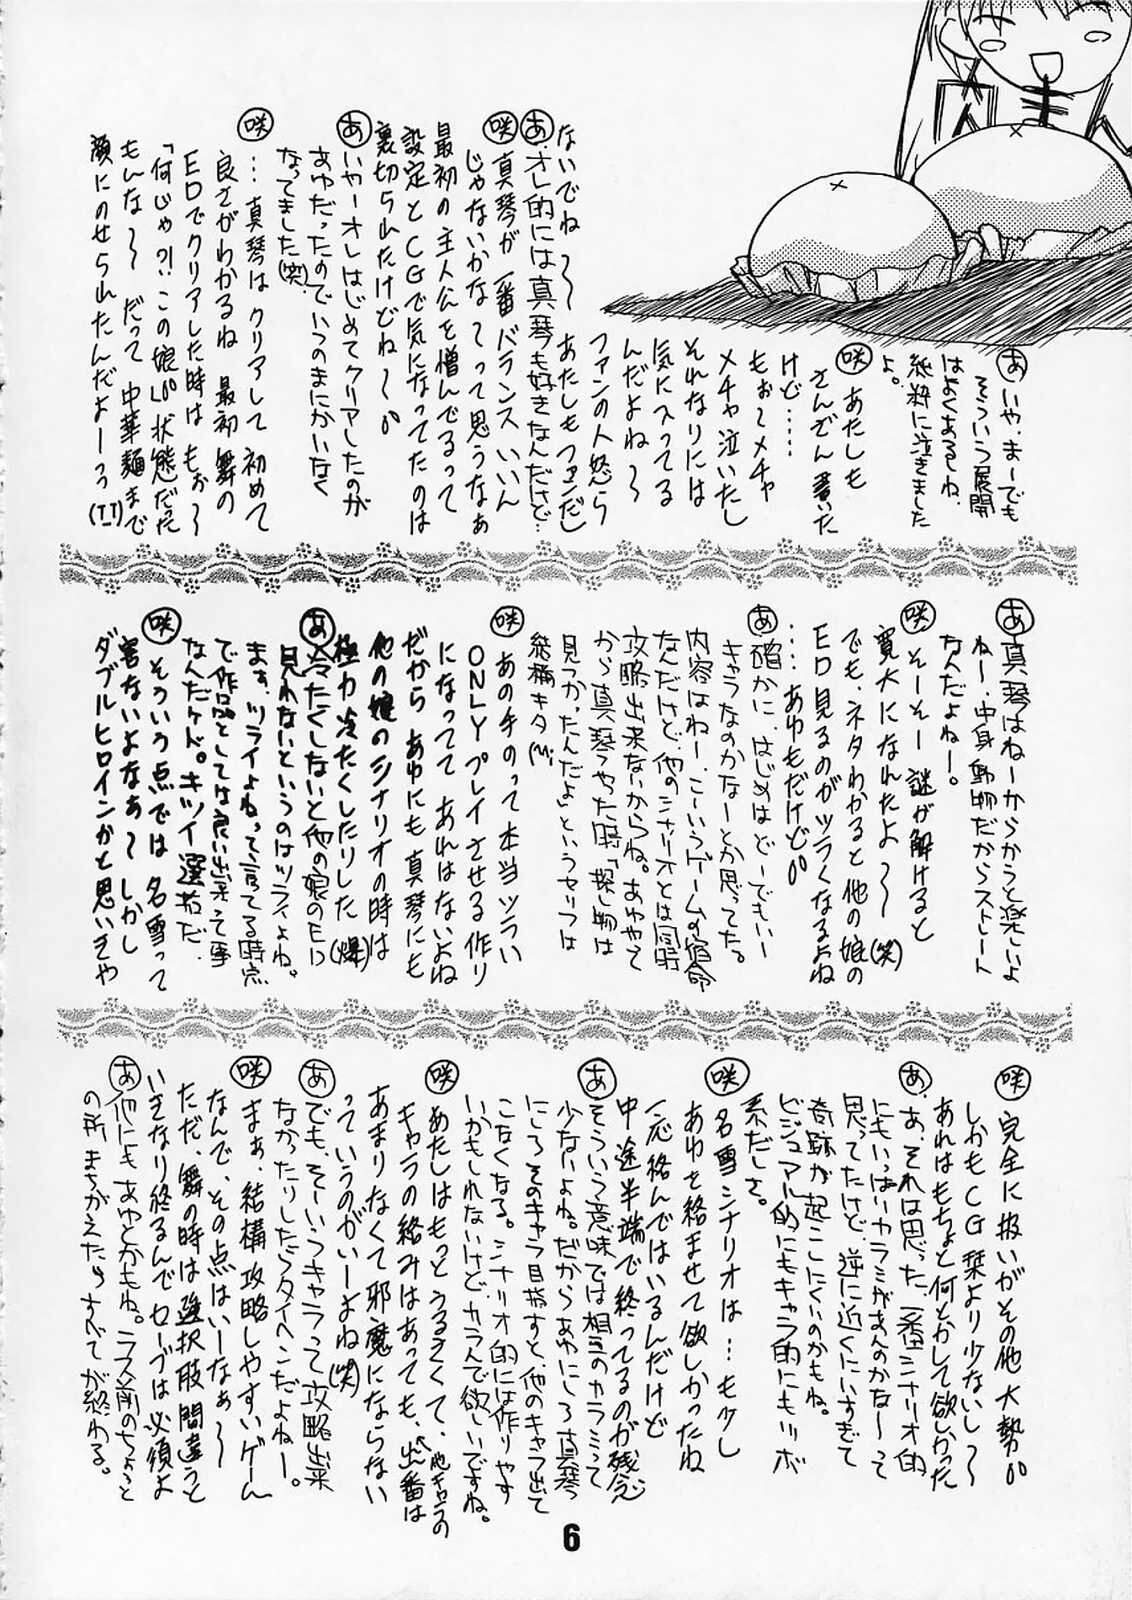 にくまん
あ いや、まーでも
そういう展開
はよくあるしね、
純粋に泣きました
よ。
咲 あたしも
さんざん書いた
けど……
もぉ〜メチャ
メチャ泣いたし
それなりには
気に入ってる
んだよね〜
ファンの人怒ら
ないでね〜〜 あたしもファンだし
あ オレ的には真琴も好きなんだけど…
咲 真琴が一番バランスいいん
じゃないかなって思うなぁ
最初の主人公を憎んでるって
設定とCGで気になってたのは
裏切られたけどね〜〜
あ いやーオレはじめてクリアしたのが
あゆだったのでいつのまにかいなく
なってました(笑)
咲 …真琴はクリアして初めて
良さがわかるね 最初舞の
EDでクリアした時はもぉ〜
「何じゃ?!この娘」状態だった
もんな〜〜 だって中華麺まで
顔にのせられたんだよーっっ
(TT)
あ 真琴はねーからかうと楽しいよ
ねー、中身動物だからストレート
なんだよねー。
咲 そーそー 謎が解けると
寛大になれたよ〜〜(笑)
でも、ネタわかると他の娘の
ED見るのがツラくなるよね
……あゆもだけど
あ 確かに、はじめはどーでもいー
キャラなのかなーとか思ってた。
内容はねー、こーいうゲームの宿命
なんだけど、他のシナリオとは同時
攻略出来ないからね。あゆやって
から真琴やった時「探し物は
見つかったんだよ」というセリフは
結構キタ
咲 あの手のって本当ツライ
ONLYプレイさせる作り
になってて あれはないよね
だから あゆにも真琴にも
他の娘のシナリオの時は
極力冷たくしたりした(爆)
あ 冷たくしないと他の娘のED
見れないというのはツライよね。
まぁ、ツライよねって言ってる時点
で作品としては良い出来って事
なんだケド。キツイ選択だ。
咲 そういう点では名雪って
害ないよなぁ〜 しかし
ダブルヒロインかと思いきや
咲 完全に扱いがその他大勢
しかもCG栞より少ないし〜
あれはもちょと何とかして欲しかった
あ あ、それは思った、一番シナリオ的
にもいっぱいカラミがあんのかなーって
思ってたけど、逆に近くにいすぎて
奇跡が起こりにくいのかもね。
ビジュアル的にもキャラ的にもリッボ
系だしさ。
咲 名雪シナリオは…も少し
あゆを絡ませて欲しかったね
一応絡んではいるんだけど
中途半端で終ってるのが残念
あ そういう意味では相互のカラミって
少ないよね。だからあゆにしろ真琴
にしろそのキャラ目指すと、他のキャラ出て
こなくなる。シナリオ的には作りやす
いかもしれないけど、カラんで欲しいですね。
咲 あたしはもっとうるさくて、他キャラの
キャラの絡みはあっても、出番は
あまりなくて邪魔にならない
っていうのがいーよね(笑)
あ でも、そーいうキャラって攻略出来
なかったりしたらタイヘンだよねー。
咲 まぁ、結構攻略しやすいゲーム
なんで、その点はいーなぁ〜
ただ、舞の時は選択肢間違うと
いきなり終るんでセーブは必須よ
あ 他にもあゆとかもね。ラス前のちょっと
の所まちがえたらすべてが終わる。
6